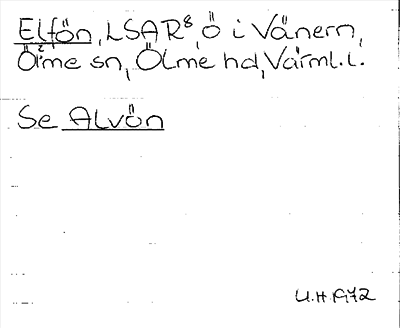 Elfön, LSAR⁸, ö i Vänern,
Ölme sn, Ölme hd, Värml. l.
Se Alvön
U.H. 1972